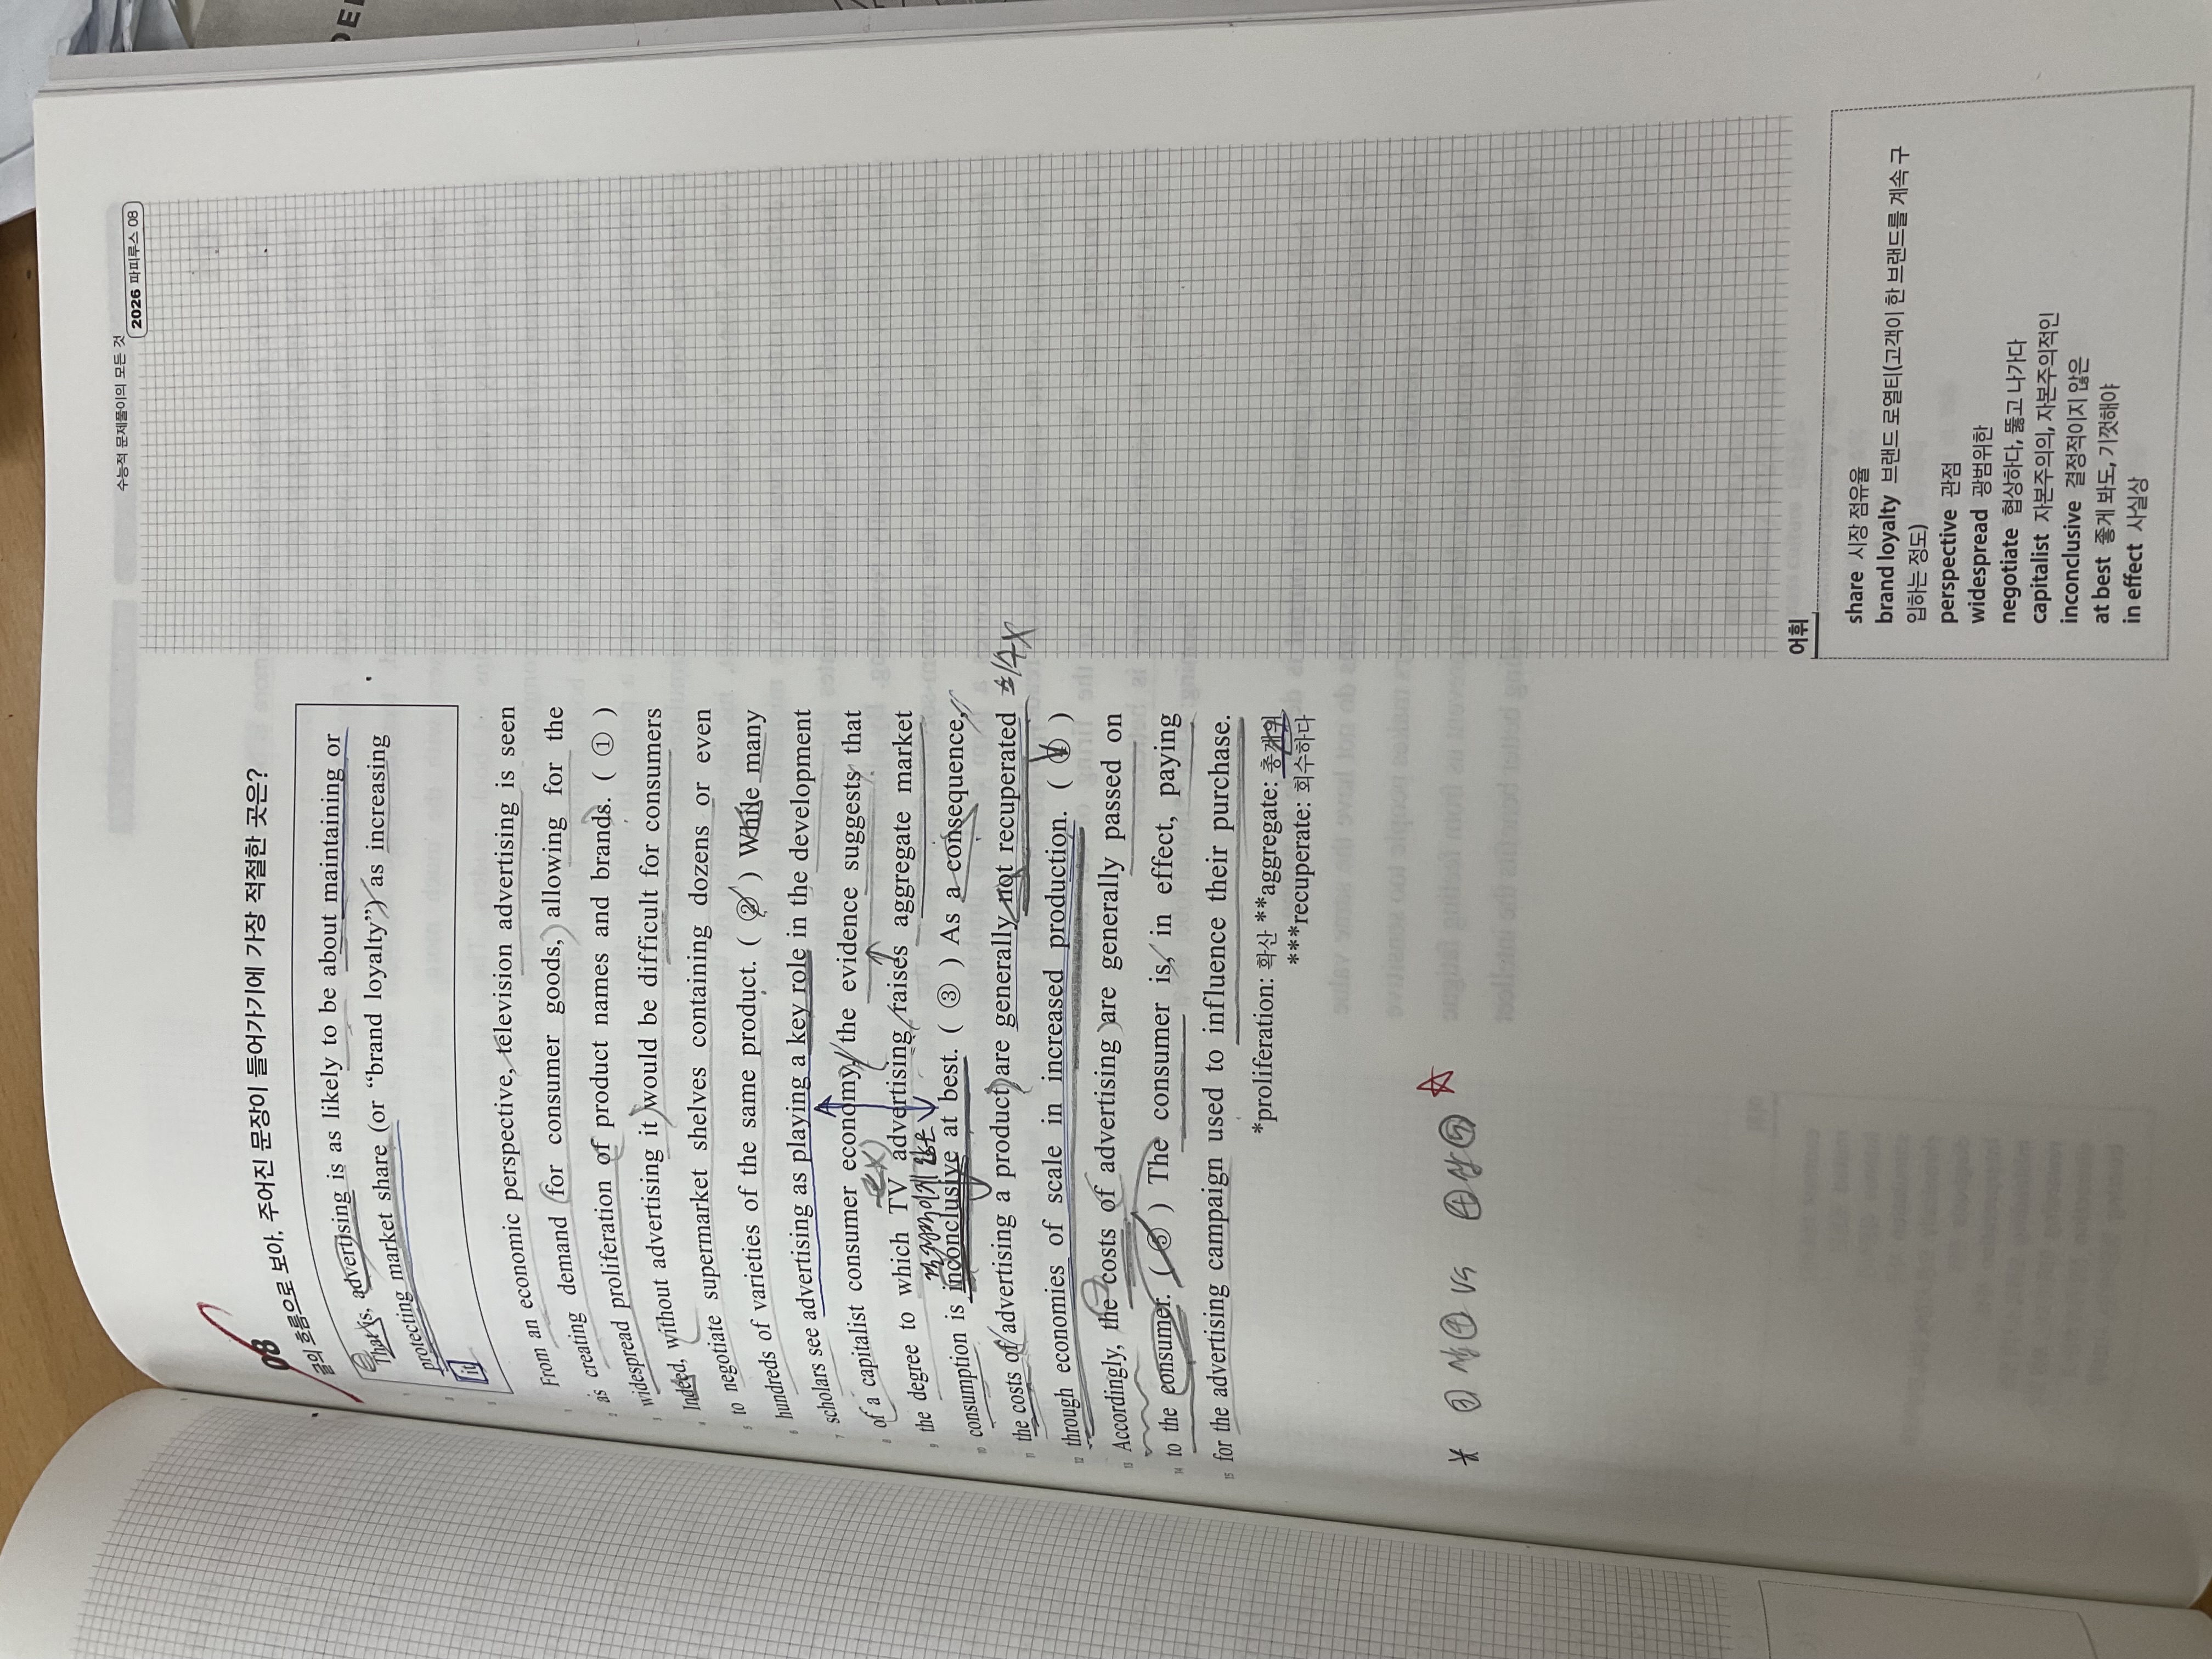 수능적 문제풀이의 모든 것
2026 파피루스 08
08
글의 흐름으로 보아, 주어진 문장이 들어가기에 가장 적절한 곳은?
That is, advertising is as likely to be about maintaining or
protecting market share (or “brand loyalty”) as increasing
it.
From an economic perspective, television advertising is seen
as creating demand for consumer goods, allowing for the
widespread proliferation of product names and brands. ( ① )
Indeed, without advertising it would be difficult for consumers
to negotiate supermarket shelves containing dozens or even
hundreds of varieties of the same product. ( ② ) While many
scholars see advertising as playing a key role in the development
of a capitalist consumer economy, the evidence suggests that
the degree to which TV advertising raises aggregate market
consumption is inconclusive at best. ( ③ ) As a consequence,
the costs of advertising a product are generally not recuperated
through economies of scale in increased production. ( ④ )
Accordingly, the costs of advertising are generally passed on
to the consumer. ( ⑤ ) The consumer is, in effect, paying
for the advertising campaign used to influence their purchase.
*proliferation: 확산 **aggregate: 총계의
***recuperate: 회수하다
ex)
회수X
③ ④ vs ④ ⑤
어휘
share 시장 점유율
brand loyalty 브랜드 로열티(고객이 한 브랜드를 계속 구
입하는 정도)
perspective 관점
widespread 광범위한
negotiate 협상하다, 뚫고 나가다
capitalist 자본주의의, 자본주의적인
inconclusive 결정적이지 않은
at best 좋게 봐도, 기껏해야
in effect 사실상